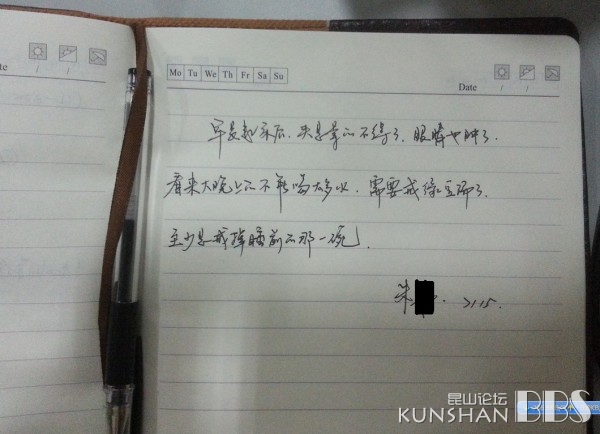 te
Mo Tu We Th Fr Sa Su
Date
早晨起床后,头是晕的不得了,眼睛也肿了.
看来大晚上的不能喝太多水,需要戒绿豆汤了.
至少是戒掉睡前的那一碗.
朱
昆山论坛
KUNSHAN BBS